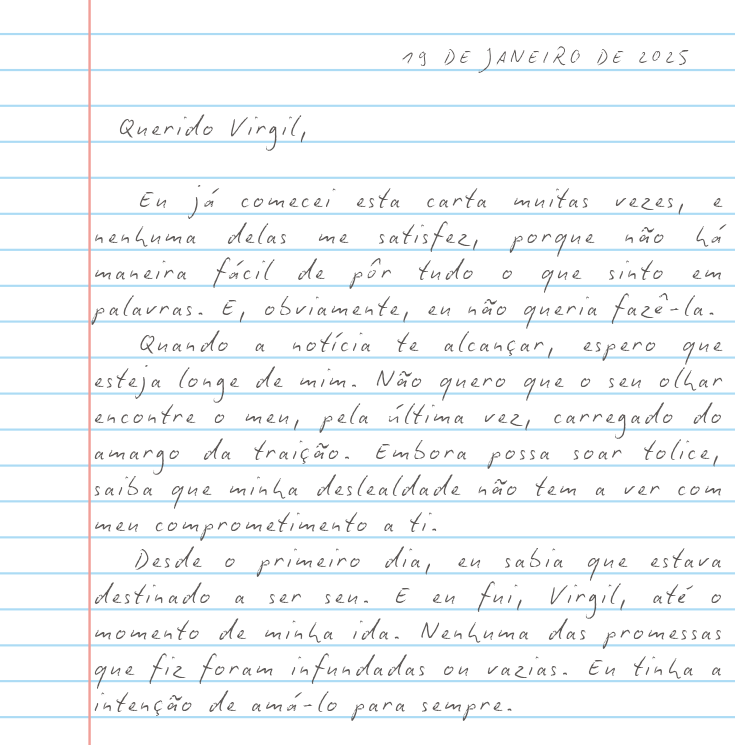 19 DE JANEIRO DE 2025
Querido Virgil,
Eu já comecei esta carta muitas vezes, e
nenhuma delas me satisfez, porque não há
maneira fácil de pôr tudo o que sinto em
palavras. E, obviamente, eu não queria fazê-la.
Quando a notícia te alcançar, espero que
esteja longe de mim. Não quero que o seu olhar
encontre o meu, pela última vez, carregado do
amargo da traição. Embora possa soar tolice,
saiba que minha deslealdade não tem a ver com
meu comprometimento a ti.
Desde o primeiro dia, eu sabia que estava
destinado a ser seu. E eu fui, Virgil, até o
momento de minha ida. Nenhuma das promessas
que fiz foram infundadas ou vazias. Eu tinha a
intenção de amá-lo para sempre.